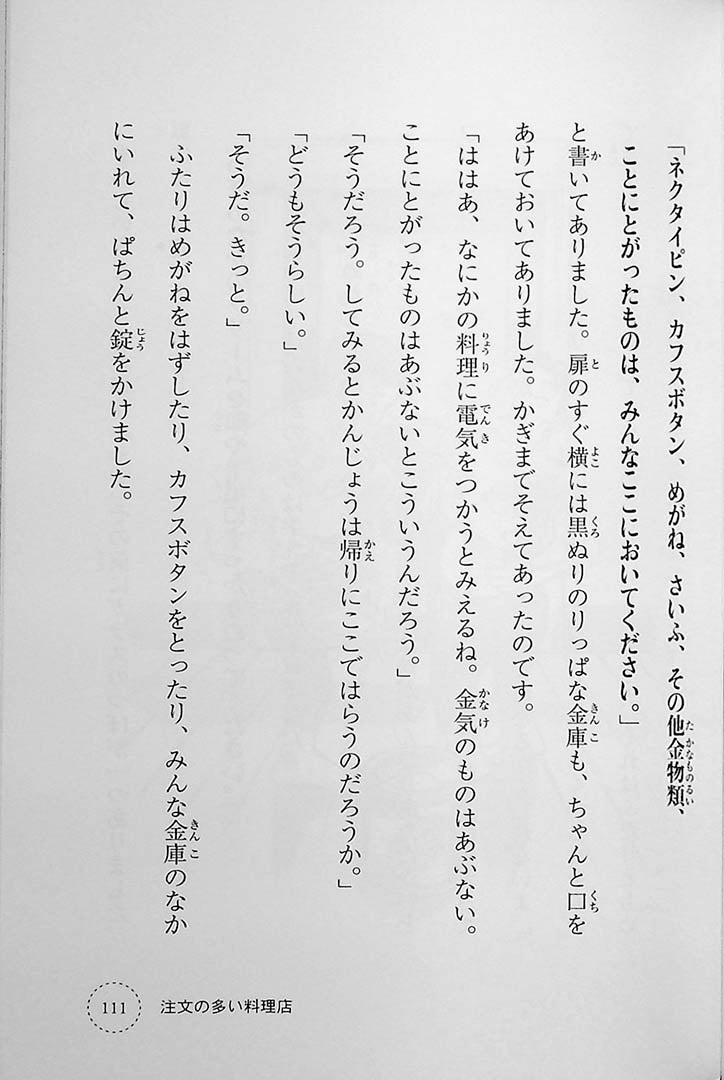 「ネクタイピン、カフスボタン、めがね、さいふ、その他金物類、
ことにとがったものは、みんなここにおいてください。」
と書いてありました。扉のすぐ横には黒ぬりのりっぱな金庫も、ちゃんと口を
あけておいてありました。かぎまでそえてあったのです。
「ははあ、なにかの料理に電気をつかうとみえるね。金気のものはあぶない。
ことにとがったものはあぶないとこういうんだろう。」
「そうだろう。してみるとかんじょうは帰りにここではらうのだろうか。」
「どうもそうらしい。」
「そうだ。きっと。」
ふたりはめがねをはずしたり、カフスボタンをとったり、みんな金庫のなか
にいれて、ぱちんと錠をかけました。
111 注文の多い料理店